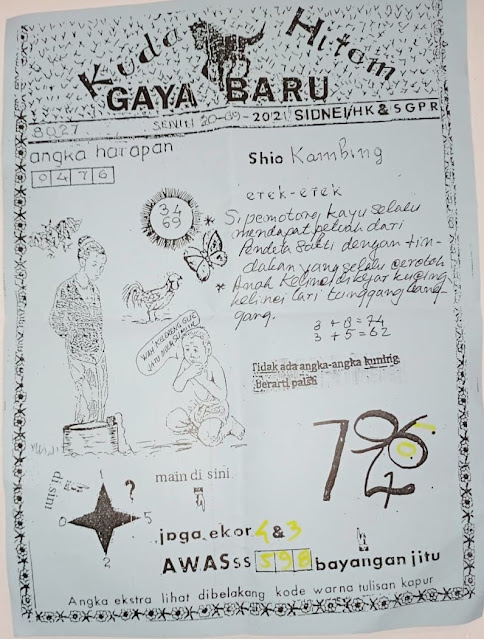 Kuda Hitam
GAYA BARU
8027
SENIN 20-09-2021 SIDNEI/HK & SGPR
angka harapan
0476
Shio Kambing
erek-erek
34
69
* Si pemotong kayu selalu
mendapat petuah dari
Pendeta sakti dengan tin-
dakan yang selalu ceroboh
* Anak kelinci dikejar kucing
kelinci lari tunggang lang
gang.
3 + 5 = 62
Tidak ada angka-angka kuning.
Berarti palsu
di sini
1
?
0
5
2
main di sini
jaga ekor 4 & 3
AWASss 596 bayangan jitu
Angka ekstra lihat dibelakang kode warna tulisan kapur